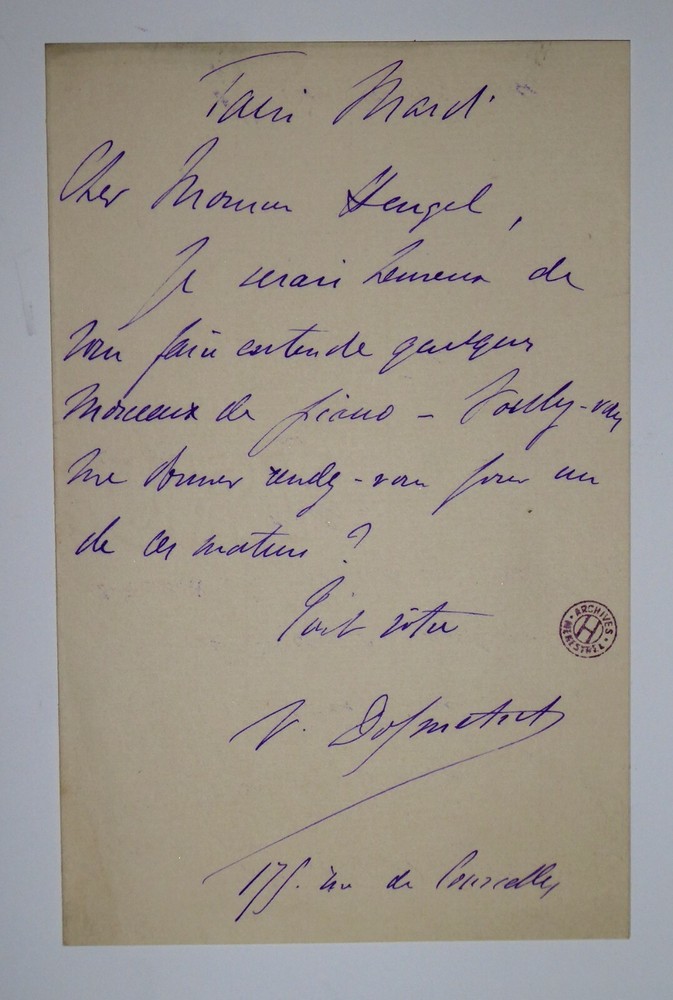 Paris Mardi
Cher Monsieur Heugel,
Je serais heureux de
vous faire entendre quelques
morceaux de piano – Voulez-vous
me donner rendez-vous pour un
de ces matins ?
Tout vôtre
V. Dolmetsch
175. rue de Courcelles
ARCHIVES
MENESTREL
H